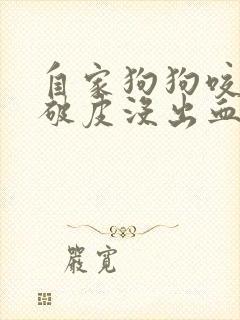 自家狗狗咬
破皮没出血
嚴寬